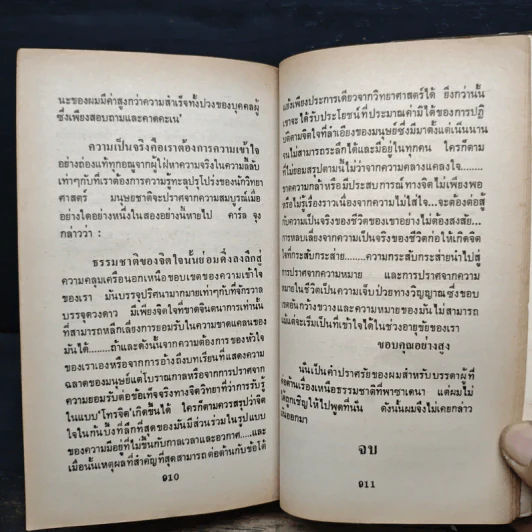 นะของผมมีค่าสูงกว่าความสำเร็จทั้งปวงของบุคคลผู้
ซึ่งเพียงสอบถามและคาดคะเน'
ความเป็นจริงคือเราต้องการความเข้าใจ
อย่างถ่องแท้ทุกอณูจากผู้ใฝ่หาความจริงในความลี้ลับ
เท่าๆกับที่เราต้องการความรู้ทะลุปรุโปร่งของนักวิทยา
ศาสตร์ มนุษยชาติจะปราศจากความสมบูรณ์เมื่อ
อย่างใดอย่างหนึ่งในสองอย่างนี้หายไป คาร์ล จุง
กล่าวว่า :
ธรรมชาติของจิตใจนั้นย่อมดิ่งลงลึกสู่
ความคลุมเครือนอกเหนือขอบเขตของความเข้าใจ
ของเรา มันบรรจุปริศนามากมายเท่าๆกับที่จักรวาล
บรรจุดวงดาว มีเพียงจิตใจที่ขาดจินตนาการเท่านั้น
ที่สามารถหลีกเลี่ยงการยอมรับในความขาดแคลนของ
มันได้........ถ้าและดังนั้นจากความต้องการของหัวใจ
ของเราเองหรือจากการอ้างถึงบทเรียนที่แสดงความ
ฉลาดของมนุษย์แต่โบราณกาลหรือจากการปราศจาก
ความยอมรับต่อข้อเท็จจริงทางจิตวิทยาที่ว่าการรับรู้
ในแบบ'โทรจิต'เกิดขึ้นได้ ใครก็ตามควรสรุปว่าจิต
ใจในก้นบึ้งที่ลึกที่สุดของมันมีส่วนร่วมในรูปแบบ
ของความมีอยู่ที่ไม่ขึ้นกับกาลเวลาและอวกาศ.....และ
เมื่อนั้นเหตุผลที่สำคัญที่สุดสามารถต่อต้านกับข้อโต้
910
แย้งเพียงประการเดียวจากวิทยาศาสตร์ได้ ยิ่งกว่านั้น
เขาจะได้รับประโยชน์ที่ประมาณค่ามิได้ของการปฏิ
บัติตามจิตใจที่ลำเอียงของมนุษย์ซึ่งมีมาตั้งแต่เนิ่นนาน
จนไม่สามารถระลึกได้และมีอยู่ในทุกคน ใครก็ตาม
ที่ไม่ยอมสรุปตามนี้ไม่ว่าจากความคลางแคลงใจ.......
ขาดความกล้าหรือมีประสบการณ์ทางจิตไม่เพียงพอ
หรือไม่รู้เรื่องราวเนื่องจากความไม่ใส่ใจ...จะต้องต่อสู้
กับความเป็นจริงของชีวิตของเขาอย่างไม่ต้องสงสัย...
การหลบเลี่ยงจากความเป็นจริงของชีวิตก่อให้เกิดจิต
ใจที่กระสับกระส่าย.......ความกระสับกระส่ายนำไปสู่
การปราศจากความหมาย และการปราศจากความ
หมายในชีวิตเป็นความเจ็บป่วยทางวิญญาณซึ่งขอบ
เขตอันกว้างขวางและความหมายของมันไม่สามารถ
แม้แต่จะเริ่มเป็นที่เข้าใจได้ในช่วงอายุขัยของเรา
ขอบคุณอย่างสูง
นั่นเป็นคำปราศรัยของผมสำหรับบรรดาผู้ที่
ต่อต้านเรื่องเหนือธรรมชาติที่พาซาเดนา แต่ผมไม่
ได้ถูกเชิญให้ไปพูดที่นั่น ดังนั้นผมจึงไม่เคยกล่าว
มันออกมา
จบ
911